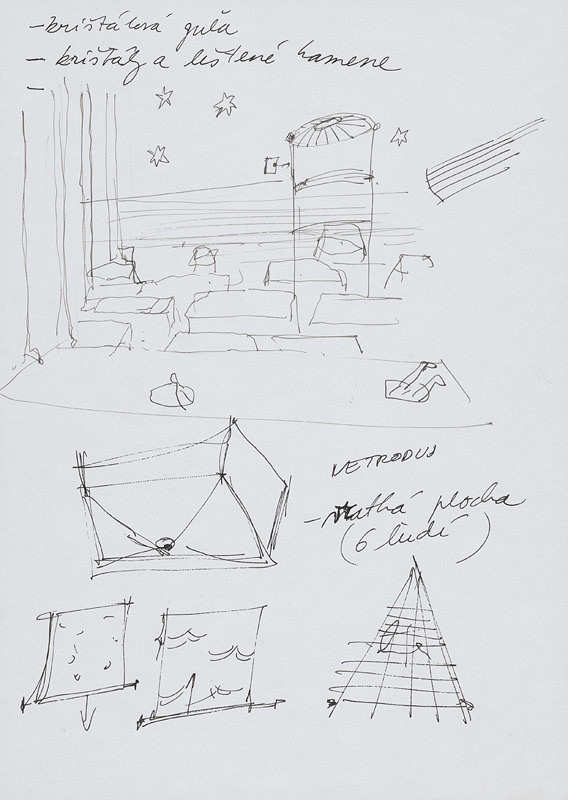 - krištálová guľa
- krištály a leštené kamene
-
VETRODUJ
- vlathá plocha
(6 ľudí)